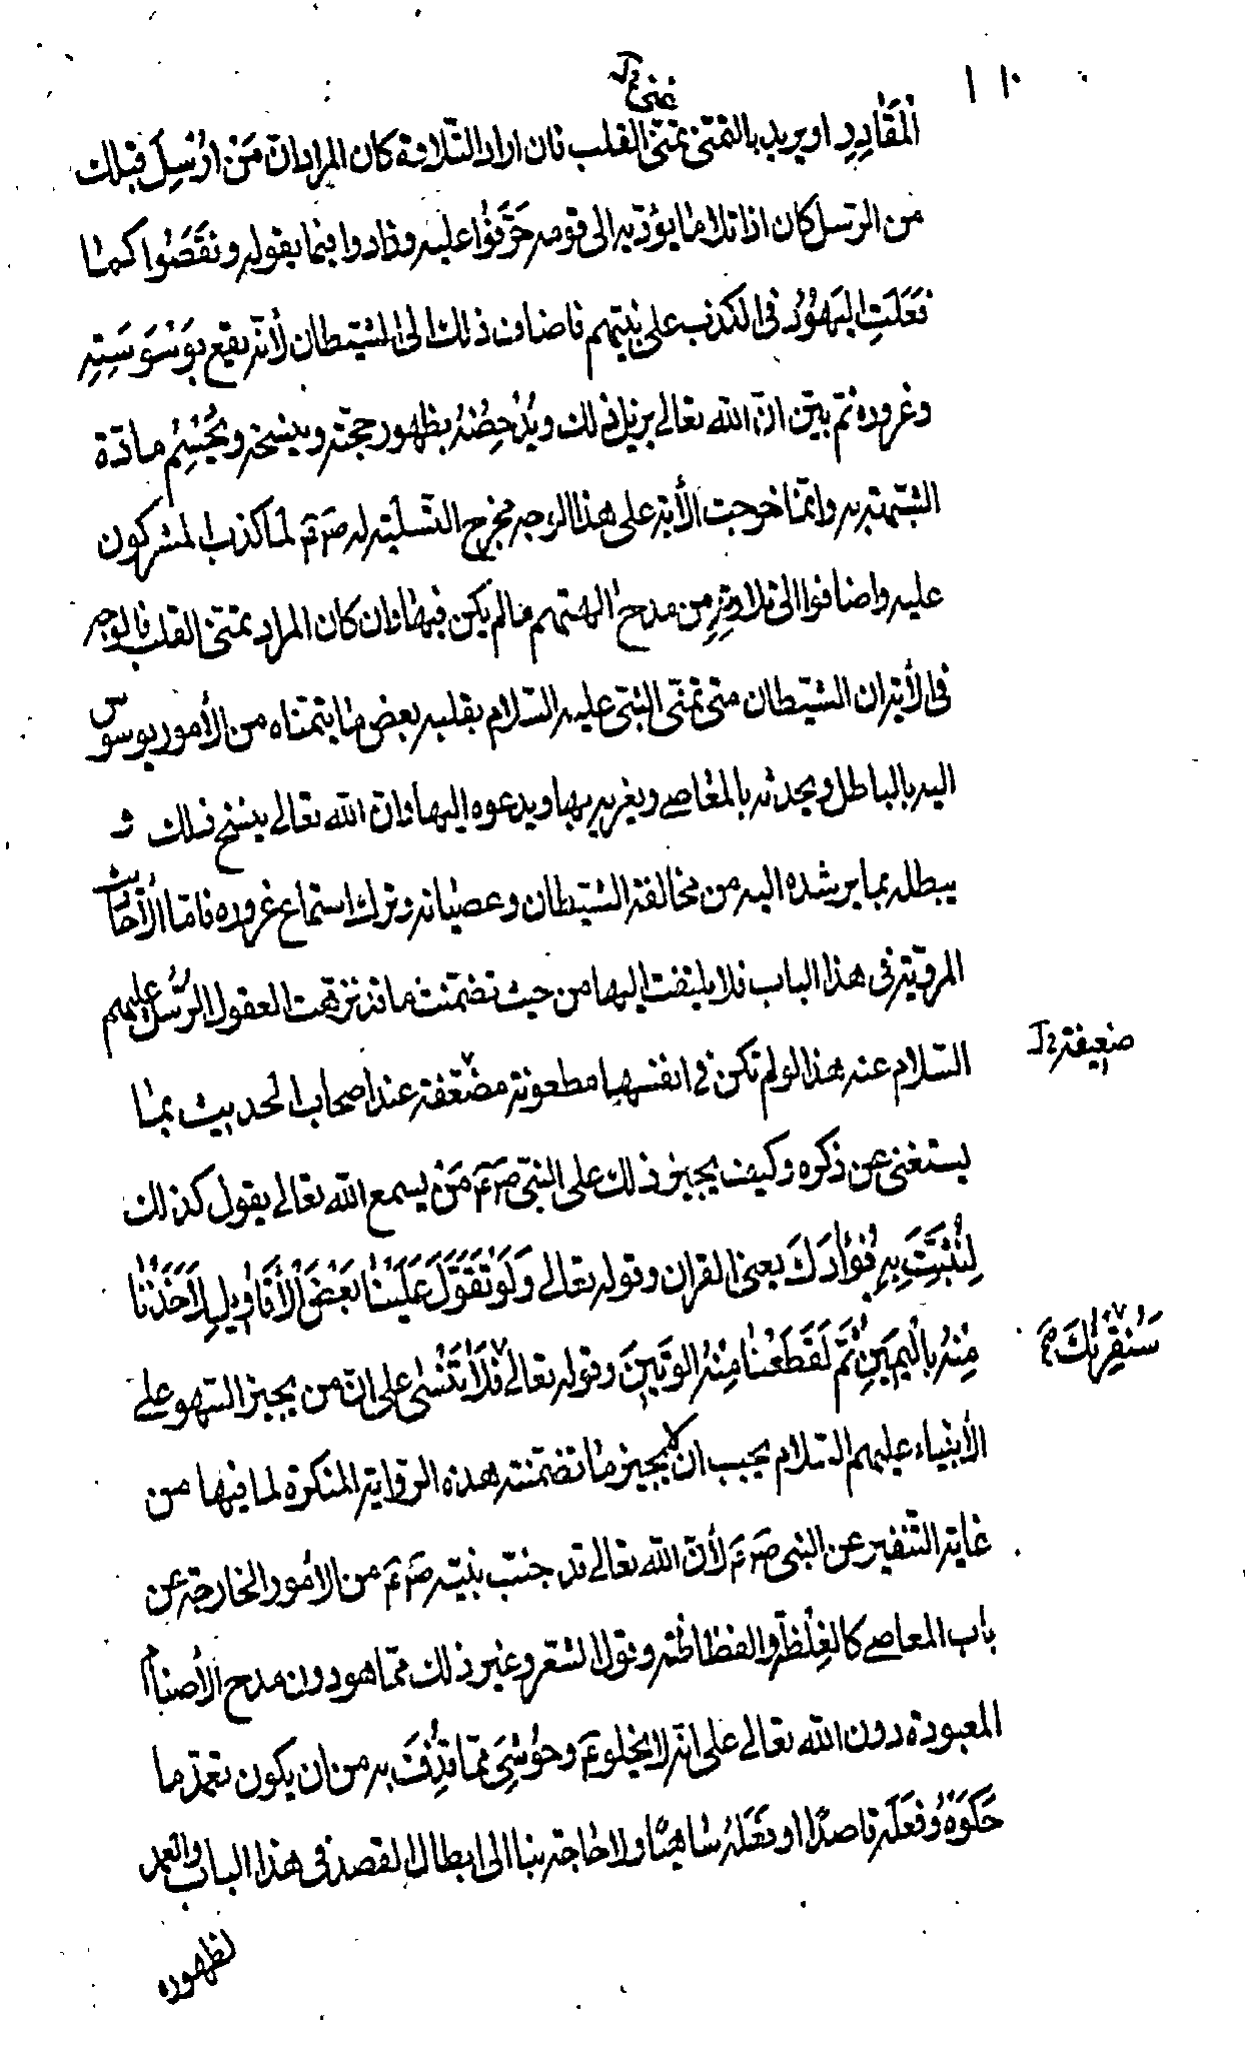 ١١٠
تمنى خ ل
الْمَقٰادِرِ او يريد بالتمنى تمنى القلب فان اراد التّلاوة كان المراد انّ مَنْ اُرْسِلَ قبلك
من الرّسل كان اذا تلا مٰا يؤدّيه الى قومه حَرَّفُوا عليه وزادوا فيما يقوله ونَقَصُوا كمٰا
فَعَلَتِ الْيَهُوُدُ فى الكذب على نبيّهم فاضاف ذلك الى الشيطان لأنّه يقع بِوَسْوَسَتِهِ
وغروره ثم بيّن انّ الله تعالى يزيل ذلك ويُدْحِضُهُ بظهور حجّته وينسخه ويُحْسِمُ مادّة
الشبهة به وانّمٰا خرجت الأية على هذا الوجه مخرج التّسلية له صَ عَ لمّا كذب المشركون
عليه واضافوا الى تلاوتِهِ مِن مدح الهتهم ما لم يكن فيهٰا وان كان المراد تمنّى القلب فالوجه
فى الأية ان الشيطان متى تمنّى النّبى عليه السّلام بقلبه بعض مٰا يتمنّاه من الأمور يوسوس
اليه بالباطل ويحدثه بالمعٰاصى ويغريه بها ويدعوه اليها وانّ الله تعالى ينسخ ذلك و
يبطله بما يرشده اليه من مخالفة الشيطان وعصيٰانه وترك استماع غروره فامّا الأحاديث
المرويّة فى هذا الباب فلا يلتفت اليها من حيث تضمّنت ما قد نزّهت العقول الرُّسُل عليهم
السّلام عنه هذا لو لم تكن فى انفسها مطعونة مضعّفة عند اصحاب الحديث بمٰا
ضعيفة خ ل
يستغنى عن ذكره وكيف يجيز ذلك على النبّى صَ عَ مَنْ يسمع الله تعالى يقول كذلك
لِنُثَبِّتَ بِهِ فُؤٰادَكَ يعنى القران وقوله تعالى وَلَوْ تَقَوَّلَ عَلَيْنٰا بَعْضَ الْأَقٰاوِيلِ لَأَخَذْنٰا
مِنْهُ بِالْيَمِينِ ثُمَّ لَقَطَعْنٰا مِنْهُ الْوَتِينَ وقوله تعالى فَلٰا تَنْسٰى على انّ من يجيز السّهو على
سَنُقْرِئُكَ صح
الأنبياء عليهم السّلام يجب ان لا يجيز مٰا تضمّنته هذه الرّواية المنكرة لما فيها من
غاية التّنفير عن النبى صَ عَ لأنّ الله تعالى قد جنّب نبيّه صَ عَ من الأمور الخارجة عن
باب المعاصى كالغِلْظَةِ والفظاظة وقول الشعر وغير ذلك ممّا هو دون مدح الأصنام
المعبودة دون الله تعالى على انّه لا يخلو عَ وحُوشِىَ ممّا قُذِفَ به من ان يكون تعمّد ما
حَكَوْهُ وفَعَلَه قاصدًا او فَعَلَهُ سٰاهيًا ولا حٰاجة بنا الى ابطال القصد فى هذا الباب والعمد
لظهوره